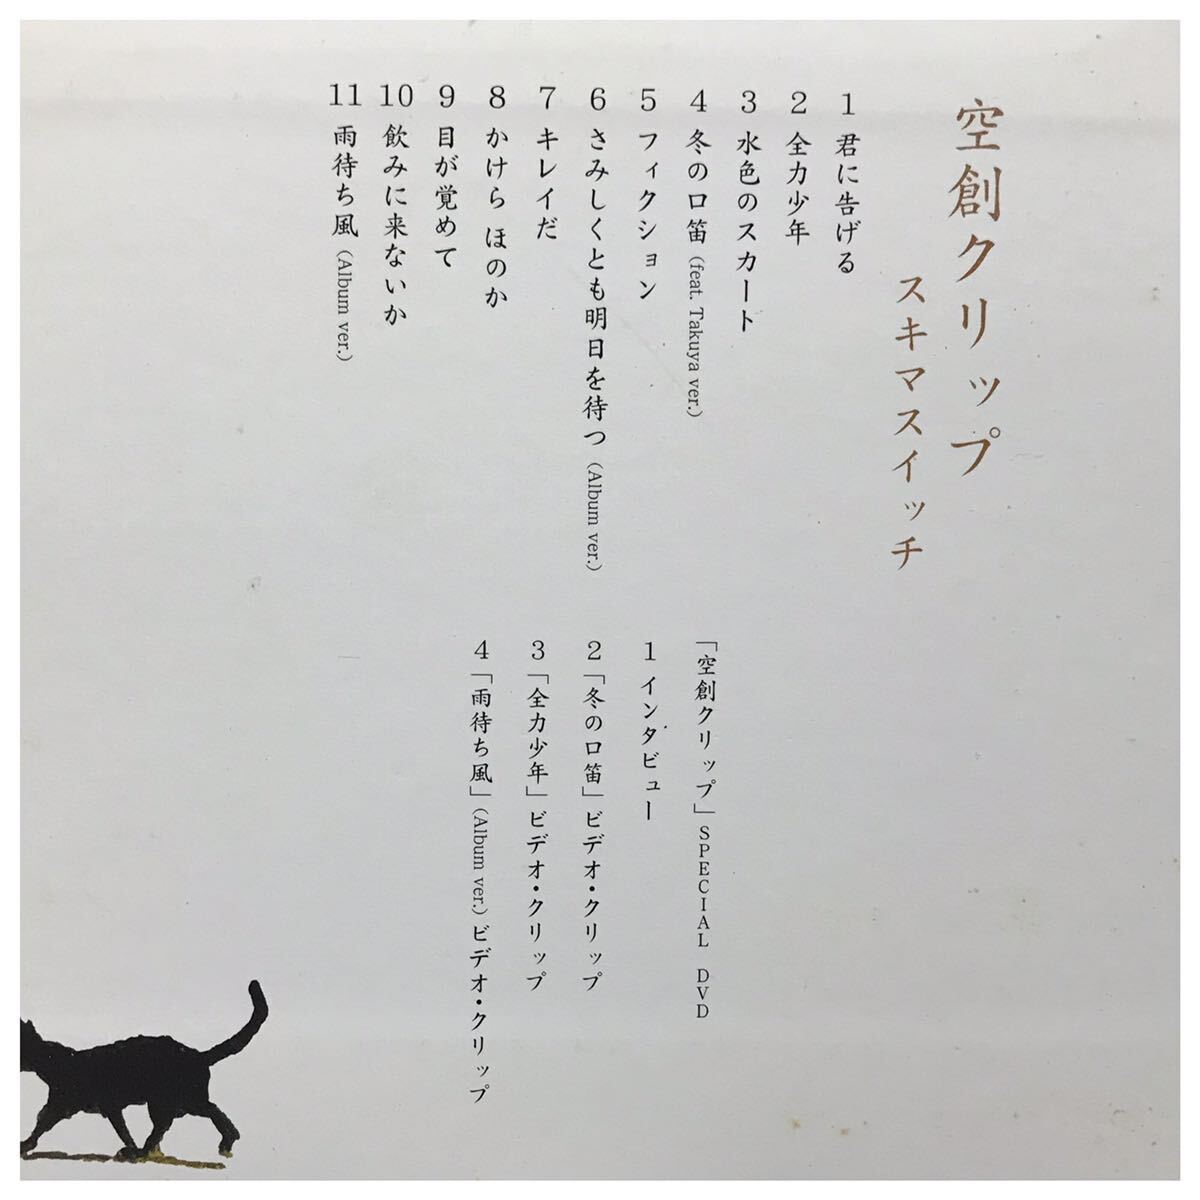 空創クリップ
スキマスイッチ
1 君に告げる
2 全力少年
3 水色のスカート
4 冬の口笛 (feat. Takuya ver.)
5 フィクション
6 さみしくとも明日を待つ (Album ver.)
7 キレイだ
8 かけら ほのか
9 目が覚めて
10 飲みに来ないか
11 雨待ち風 (Album ver.)
「空創クリップ」SPECIAL DVD
1 インタビュー
2 「冬の口笛」ビデオ・クリップ
3 「全力少年」ビデオ・クリップ
4 「雨待ち風」(Album ver.) ビデオ・クリップ